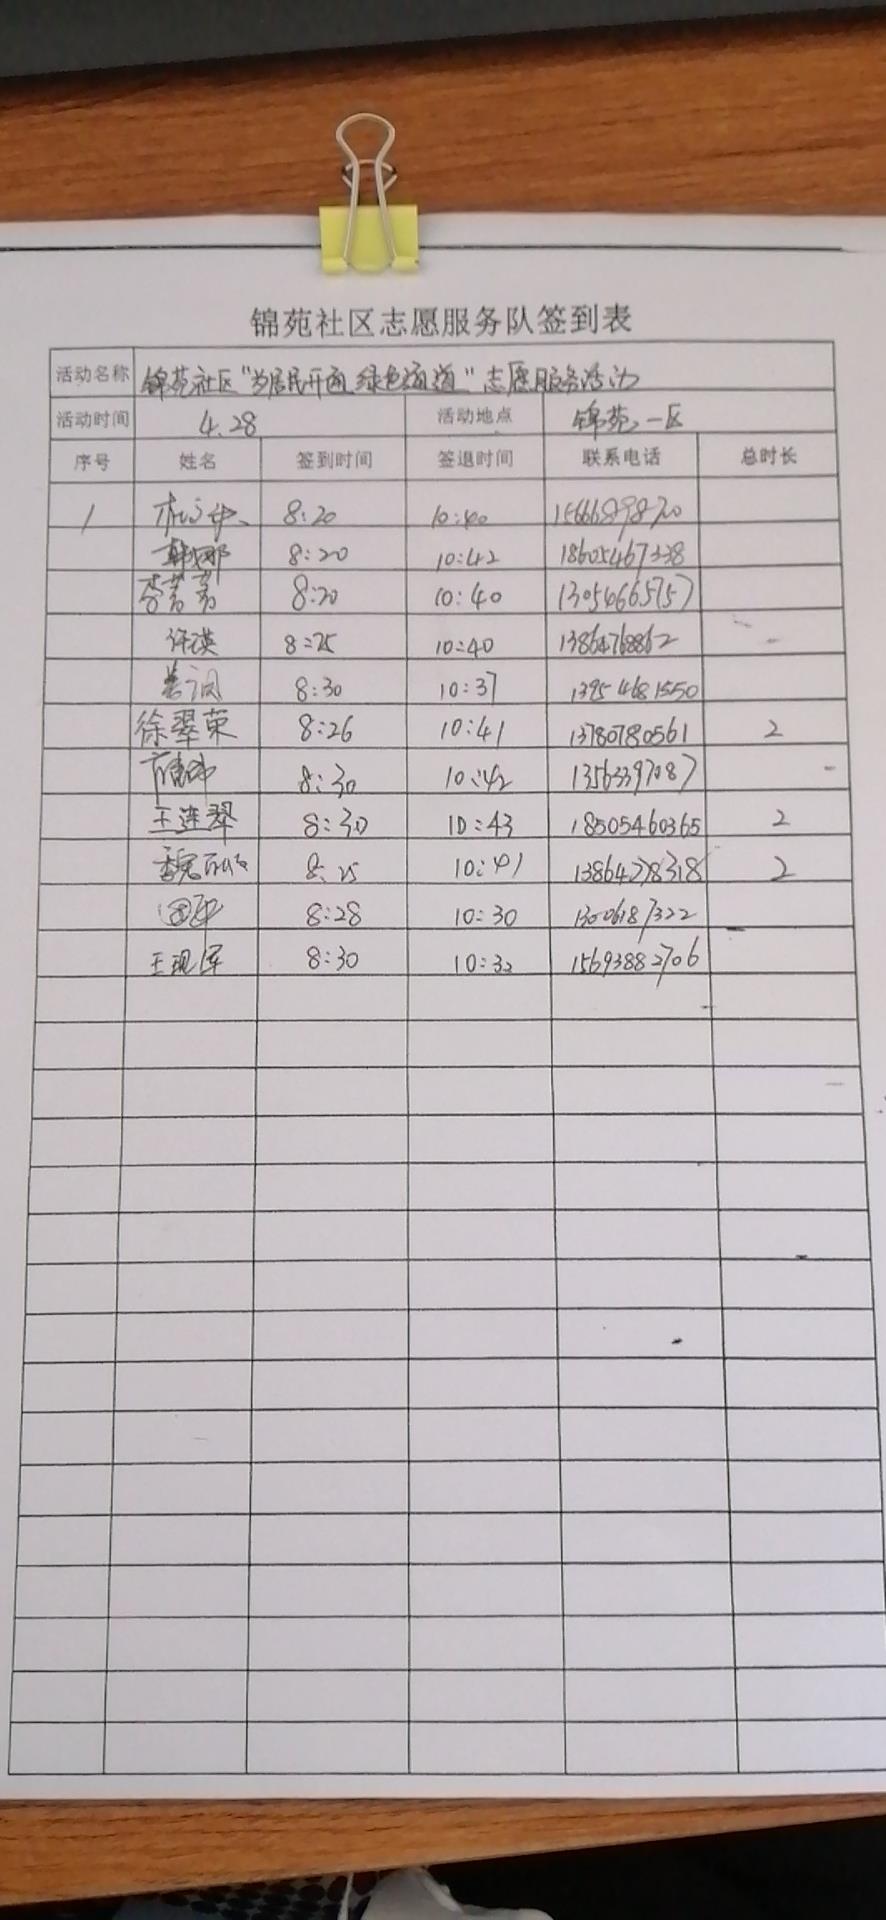 锦苑社区志愿服务队签到表
活动名称 锦苑社区"为居民开通绿色通道"志愿服务活动
活动时间 4.28 活动地点 锦苑一区
序号 姓名 签到时间 签退时间 联系电话 总时长
1 8:20 10:40 15666898720
韩娜 8:20 10:42 18605467338
李菁菁 8:20 10:40 13054665757
许瑛 8:25 10:40 13864768862
8:30 10:37 13954681550
徐翠荣 8:26 10:41 13780780561 2
8:30 10:42 13563397087
王连翠 8:30 10:43 18505460365 2
8:25 10:41 13864278318 2
8:28 10:30 13006187322
王现军 8:30 10:32 15693882706